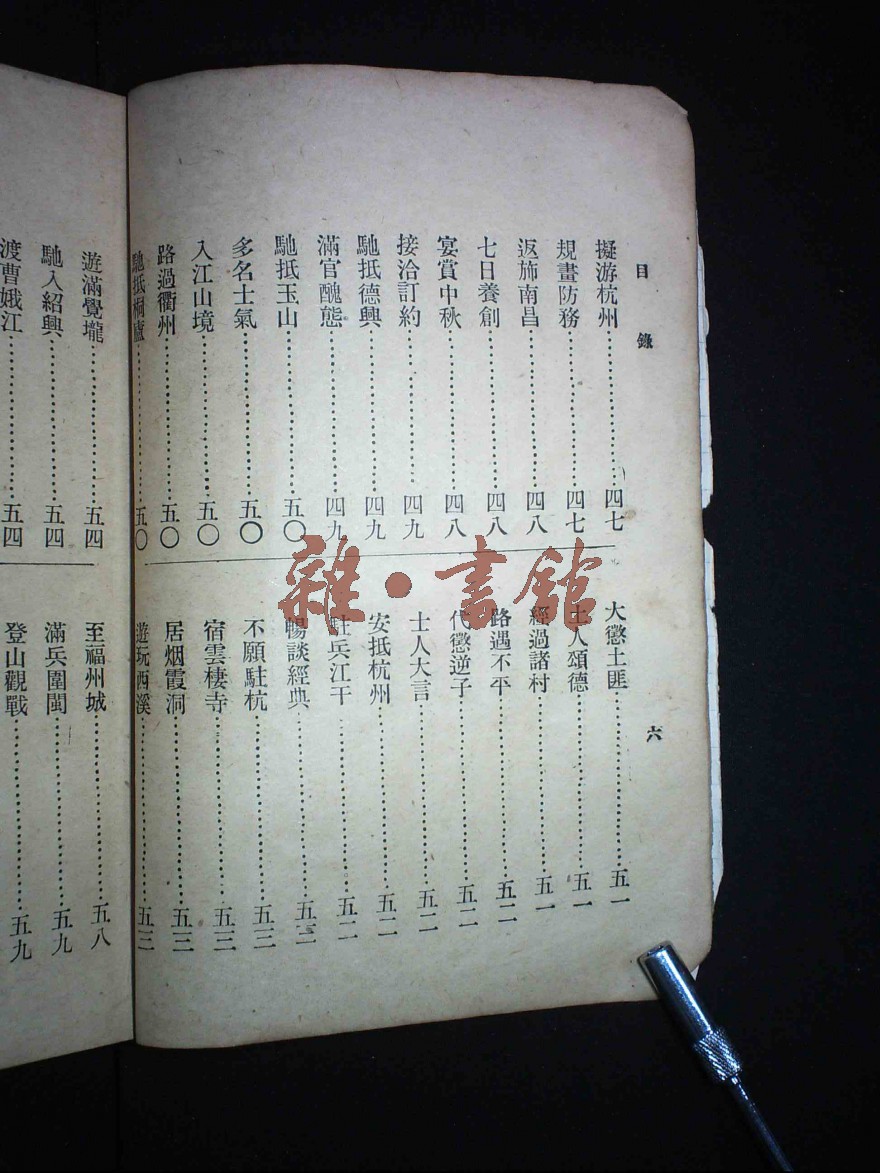 目錄
六
擬游杭州⋯⋯四七
規畫防務⋯⋯四七
返斾南昌⋯⋯四八
七日養創⋯⋯四八
宴賞中秋⋯⋯四八
接洽訂約⋯⋯四九
馳抵德興⋯⋯四九
滿官醜態⋯⋯四九
馳抵玉山⋯⋯五〇
多名士氣⋯⋯五〇
入江山境⋯⋯五〇
路過衢州⋯⋯五〇
馳抵桐廬⋯⋯五〇
大懲土匪⋯⋯五一
土人頌德⋯⋯五一
經過諸村⋯⋯五一
路遇不平⋯⋯五二
代懲逆子⋯⋯五二
士人大言⋯⋯五二
安抵杭州⋯⋯五二
駐兵江干⋯⋯五二
暢談經典⋯⋯五二
不願駐杭⋯⋯五三
宿雲棲寺⋯⋯五三
居烟霞洞⋯⋯五三
遊玩西溪⋯⋯五三
遊滿覺壠⋯⋯五四
馳入紹興⋯⋯五四
渡曹娥江⋯⋯五四
至福州城⋯⋯五八
滿兵圍閩⋯⋯五九
登山觀戰⋯⋯五九
雜·書館